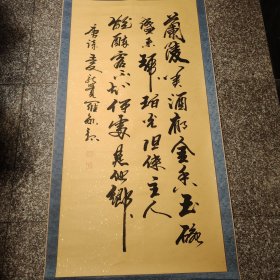 蘭陵美酒郁金香玉碗
盛来琥珀光但使主人
能醉客不知何處是他鄉
唐詩